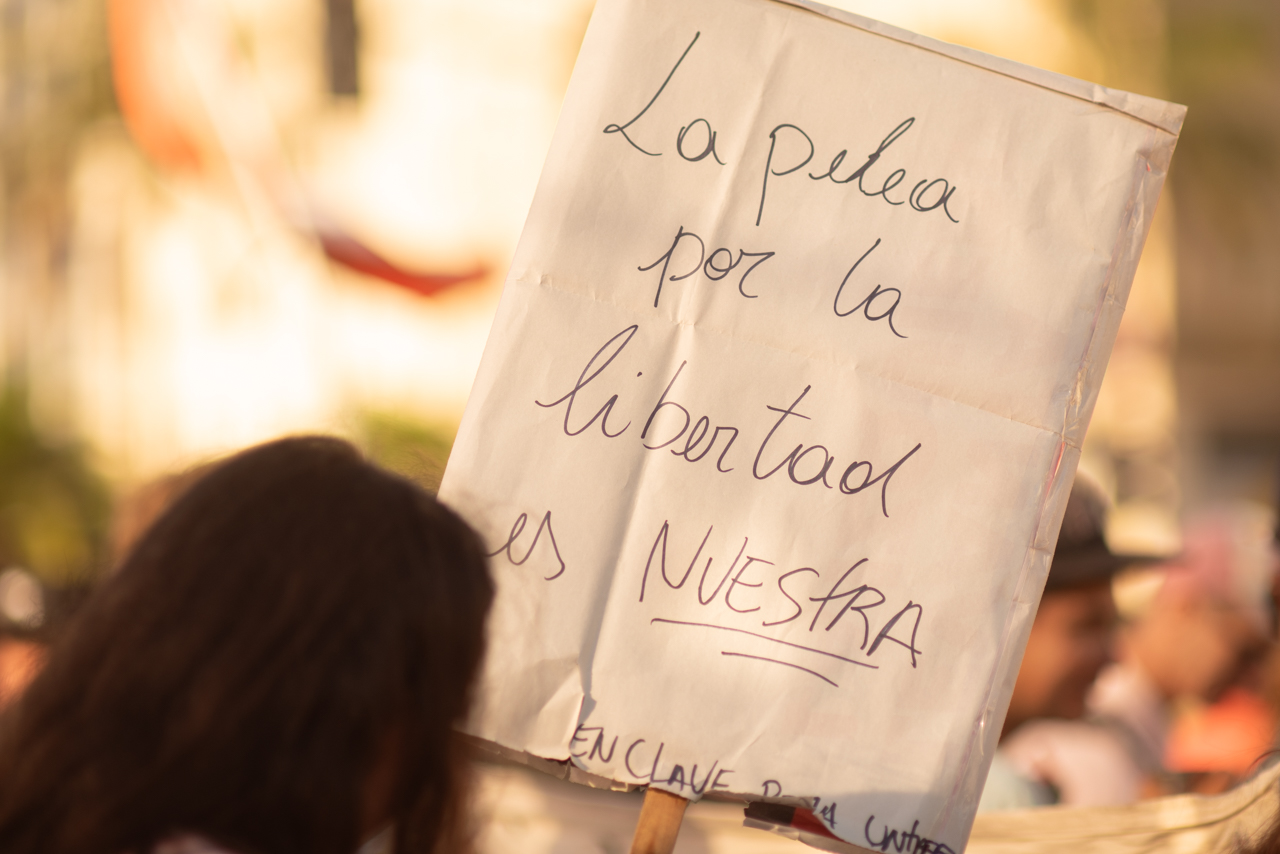 La pelea
por la
libertad
es NUESTRA
EN CLAVE